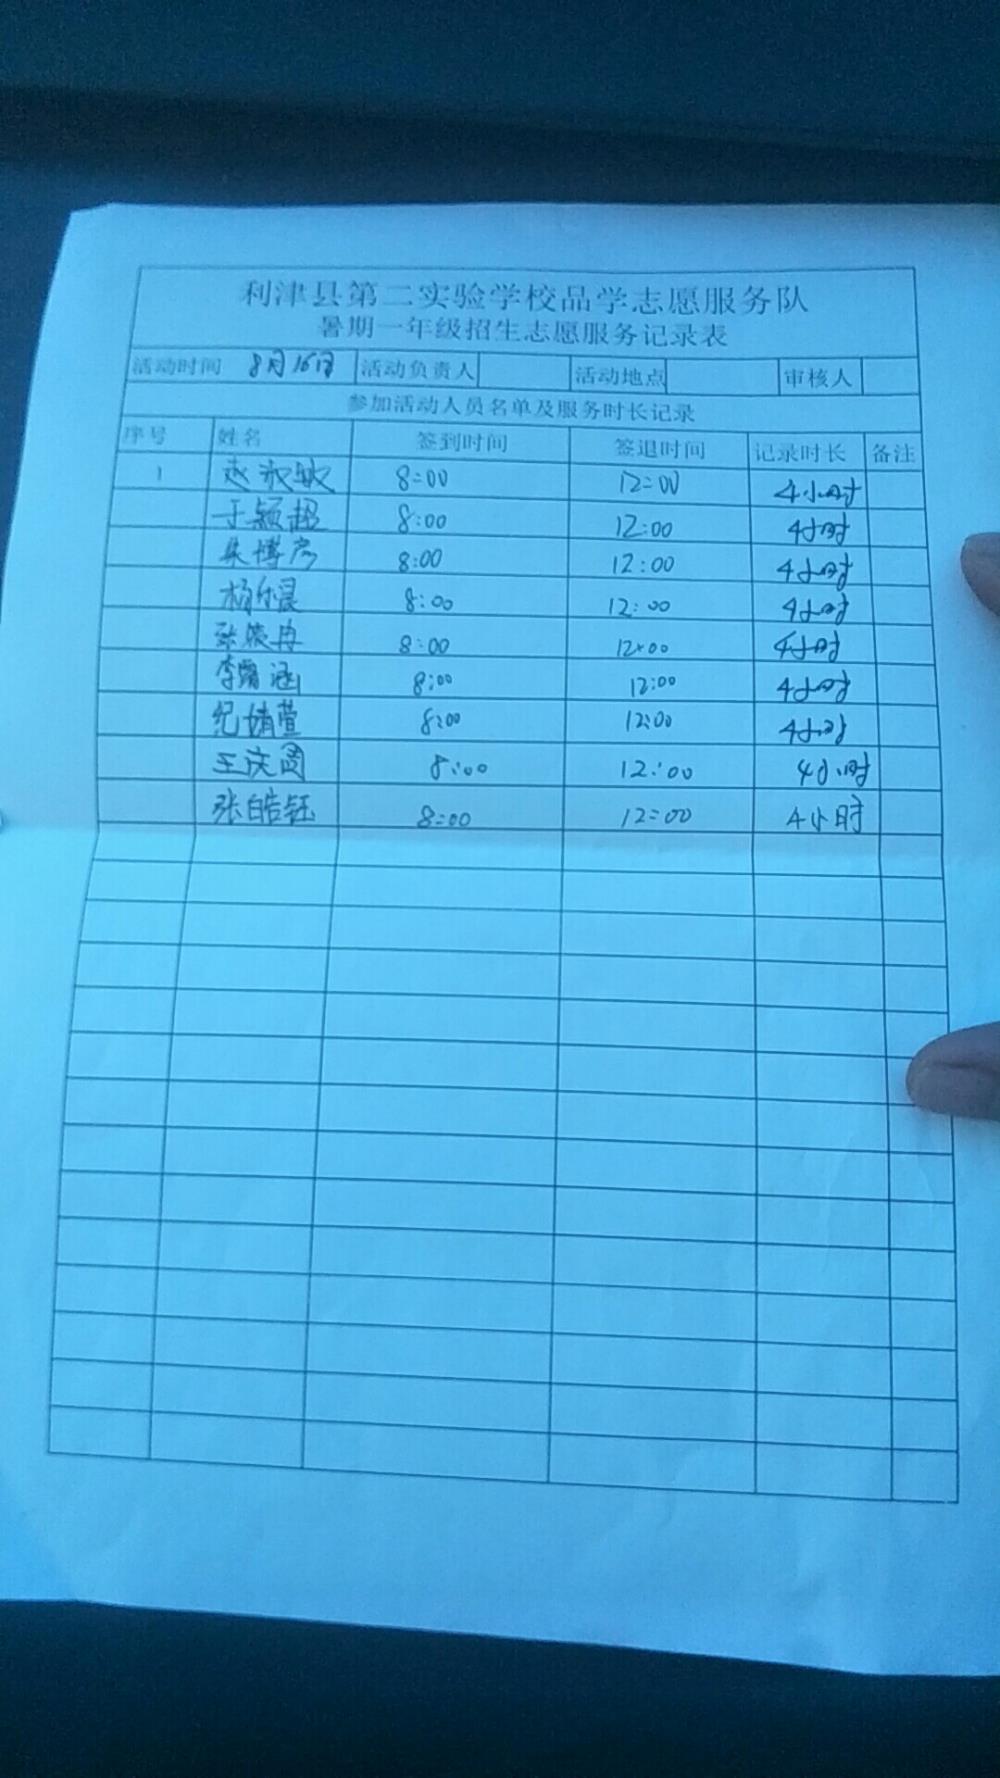 利津县第二实验学校品学志愿服务队
暑期一年级招生志愿服务记录表
活动时间 8月16日 活动负责人 活动地点 审核人
参加活动人员名单及服务时长记录
序号 姓名 签到时间 签退时间 记录时长 备注
1 赵淑敏 8:00 12:00 4小时
于颖超 8:00 12:00 4小时
博彦 8:00 12:00 4小时
杨尔晨 8:00 12:00 4小时
张 冉 8:00 12:00 4小时
李 涵 8:00 12:00 4小时
纪婧萱 8:00 12:00 4小时
王庆 8:00 12:00 4小时
张皓钰 8:00 12:00 4小时